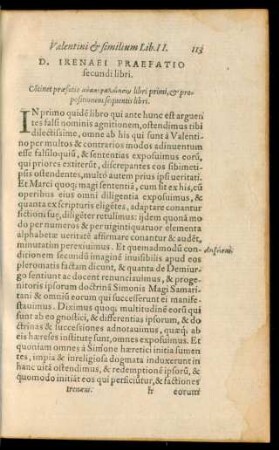 Valentini & similium Lib. II. 113
D. IRENAEI PRAEFATIO
secundi libri.
Cõtinet præfatio libri primi, & pro-
positionem sequentis libri.
IN primo quidẽ libro qui ante hunc est arguen
tes falsi nominis agnitionem, ostendimus tibi
dilectissime, omne ab his qui sunt à Valenti-
no per multos & contrarios modos adinuentum
esse falsiloquiũ, & sententias exposuimus eorũ,
qui priores extiterũt, discrepantes eos sibimeti-
psis ostendentes, multò autem prius ipsi ueritati.
Et Marci quoq; magi sententiã, cum sit ex his, cũ
operibus eius omni diligentia exposuimus, &
quanta ex scripturis eligẽtes, adaptare conantur
fictioni suę, diligẽter retulimus: idem quotã mo
do per numeros & per uigintiquatuor elementa
alphabetæ ueritatẽ affirmare conantur & audẽt,
minutatim perexiuimus. Et quemadmodũ con-
ditionem secundũ imaginẽ inuisibilis apud eos
pleromatis factam dicunt, & quanta de Demiur-
go sentiunt ac docent renunciauimus, & proge-
nitoris ipsorum doctrinã Simonis Magi Samari-
tani & omnium eorũ qui successerunt ei manife-
stauimus. Diximus quoq; multitudinẽ eorũ qui
sunt ab eo gnostici, & differentias ipsorum, & do
ctrinas & successiones adnotauimus, quæq́; ab
eis hæreses institutę sunt, omnes exposuimus. Et
quoniam omnes à Simone hæretici initia sumen
tes, impia & irreligiosa dogmata induxerunt in
hanc uitã ostendimus, & redemptionẽ ipsorũ, &
quomodo initiãt eos qui perficiũtur, & factiones
Irenæus. h eorum